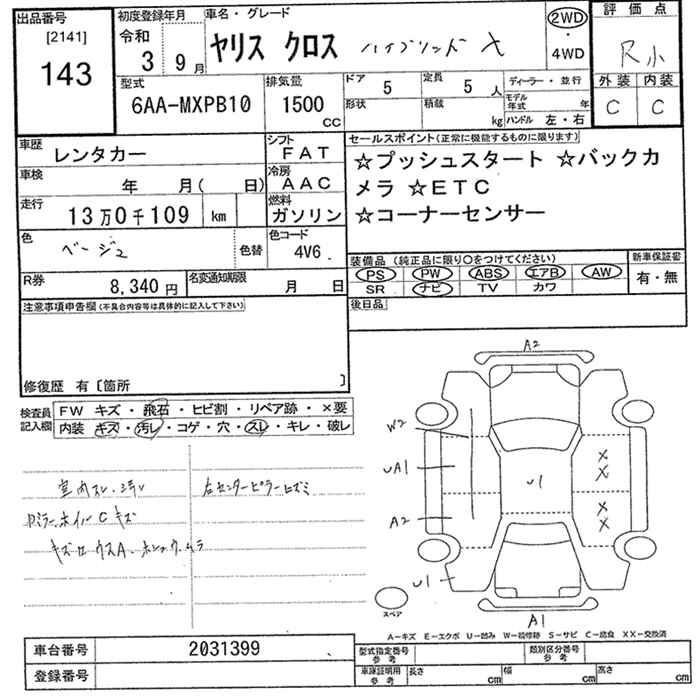 出品番号
[2141]
143
初度登録年月
令和
3 9月
車名・グレード
ヤリス クロス ハイブリッド X
2WD
・
4WD
評価点
R小
外装 内装
C C
型式
6AA-MXPB10
排気量
1500
CC
ドア
5
定員
5人
形状
積載
kg
ディーラー・並行
モデル年式 年
ハンドル 左・右
車歴
レンタカー
シフト
FAT
車検
年 月( 日)
冷房
AAC
走行
13万0千109 km
燃料
ガソリン
色
ベージュ
色替
色コード
4V6
R券
8,340円
名変通知期限
月 日
セールスポイント(正常に機能するものに限ります)
☆プッシュスタート ☆バックカ
メラ ☆ETC
☆コーナーセンサー
装備品 (純正品に限り○をつけてください)
PS PW ABS エアB AW
SR ナビ TV カワ
新車保証書
有・無
後日品
注意事項申告欄(不具合内容等は具体的に記入して下さい)
修復歴 有〔箇所 〕
検査員
記入欄
FW キズ・飛石・ヒビ割・リペア跡・×要
内装 キズ・汚レ・コゲ・穴・スレ・キレ・破レ
室内スレ・汚レ
右センターピラーヒズミ
ミラー、ホイルCキズ
A2
W2
UA1
A2
U1
U1
X
X
X
X
A1
スペア
A−キズ E−エクボ U−凹み W−補修跡 S−サビ C−腐食 XX−交換済
車台番号
2031399
登録番号
型式指定番号
参考
類別区分番号
参考
車庫証明用
参考
長さ cm
幅 cm
高さ cm